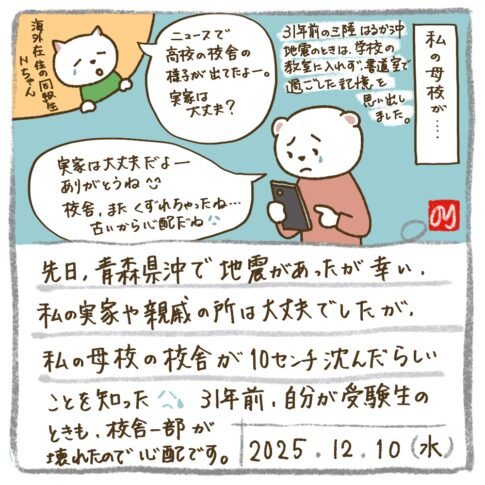 私の母校が……
31年前の三陸はるか沖
地震のときは、学校の
教室に入れず、書道室で
過ごした記憶を
思い出し
ました。
ニュースで
高校の校舎の
様子が出てたよー。
実家は
大丈夫？
海外在住の同級生
Nちゃん
実家は大丈夫だよー
ありがとうね
校舎、またくずれちゃったね…
古いから心配だね
先日、青森県沖で地震があったが幸い、
私の実家や親戚の所は大丈夫でしたが、
私の母校の校舎が10センチ沈んだらしい
ことを知った 31年前、自分が受験生の
ときも、校舎一部が
壊れたので心配です。
2025.12.10(水)